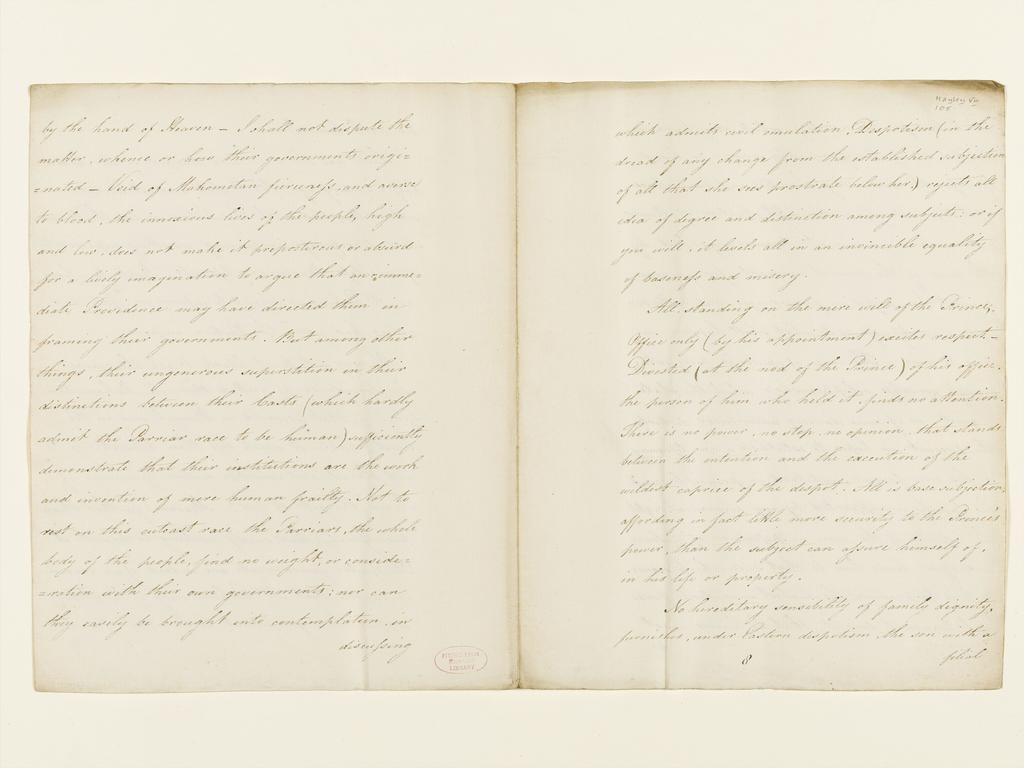 by the hand of Heaven – I shall not dispute the
matter, whence or how their governments origi=
=nated – Void of Mahometan fierceness, and averse
to blood, the innoxious lives of the people, high
and low, does not make it preposterous or absurd
for a lively imagination to argue that an imme=
diate Providence may have directed them in
framing their governments. But among other
things, their ungenerous superstition in their
distinctions between their Casts (which hardly
admit the Parriar race to be human) sufficiently
demonstrate that their institutions are the work
and invention of mere human frailty. Not to
rest on this outcast race the Parriars, the whole
body of the people, find no weight, or conside=
=ration with their own governments: nor can
they easily be brought into contemplation in
discussing
Hayley
105
which admits civil emulation. Despotism (in the
dread of any change from the established subjection
of all that she sees prostrate below her,) rejects all
idea of degree and distinction among subjects: or if
you will, it levels all in an invincible equality
of baseness and misery.
All, standing on the mere will of the Prince,
Office only (by his appointment) excites respect. –
Divested (at the nod of the Prince) of his office,
the person of him who held it, finds no attention.
There is no power, no stop, no opinion, that stands
between the intention and the execution of the
wildest caprice of the despot. All is base subjection,
affording in fact little more security to the Prince's
power, than the subject can assure himself of,
in his life or property.
No hereditary sensibility of family dignity,
furnishes, under Eastern despotism, the son with a
8
filial
LIBRARY